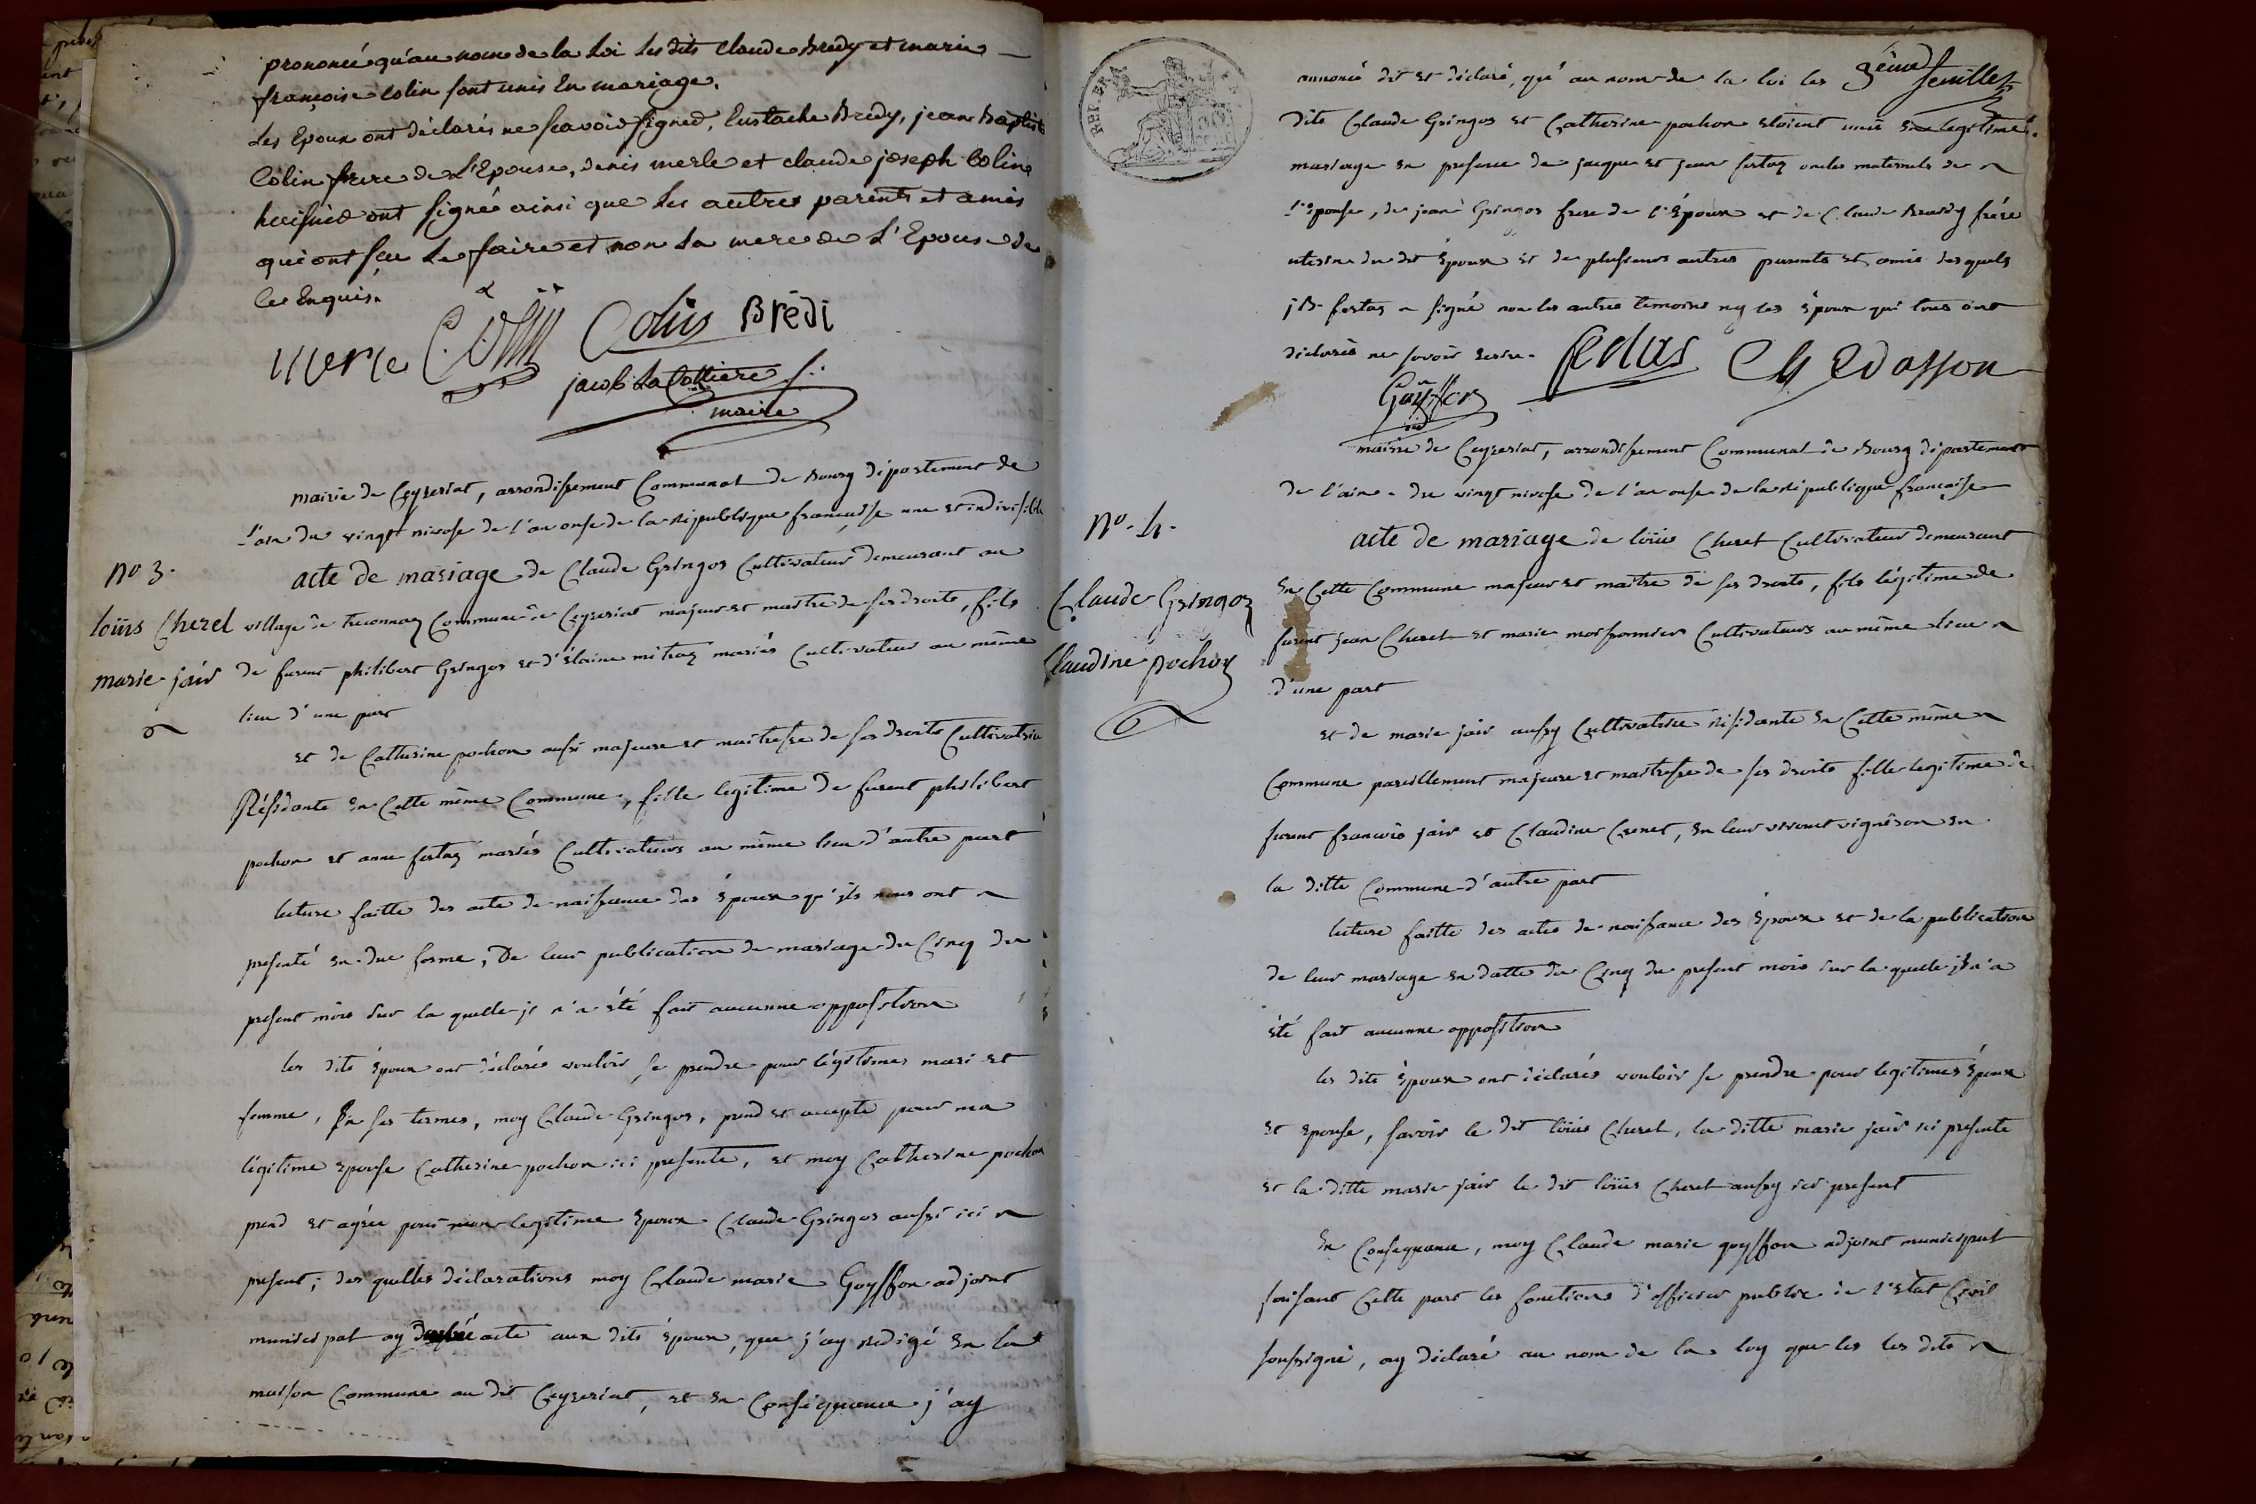 prononcé qu'au nom de la Loi les dits claude Bredy et marie
françoise Colin sont unis En mariage.
Les Epoux ont déclarés ne sçavoir signer, Eustache Bredy, jean Baptiste
Colin frere de L'Epouse, denis merle et claude joseph Colin
huissier ont signé ainsi que les autres parents et amis
qui ont sçu Le faire et non La mere de L'Epouse de
ce Enquis.
Merle Colin Colin Brédi
jacob La Cottiere
maire
mairie de Ceyzeriat, arrondissement Communal de Bourg département de
l'ain du vingt nivose de l'an onse de la république française une et indivisible
No 3.
Loüis Cherel
marie jair
acte de mariage de Claude Gringoz Cultivateur demeurant au
village de treconnaz Commune de Ceyzeriat majeur et maitre de ses droits, fils
de furent philibert Gringoz et d'Elaine mitraz mariés Cultivateur au même
lieu d'une part
et de Catherine pochon aussi majeure et maitresse de ses droits Cultivatrice
Résidante en Cette même Commune, fille legitime de furent philibert
pochon et anne fertaz mariés Cultivateurs au même lieu d'autre part
lecture faitte des acte de naissance des époux qu'ils nous ont
presenté en due forme, De leur publication de mariage du Cinq du
present mois sur la quelle je n'a été fait aucunne opposition
les dits époux ont déclarés vouloir se prendre pour légitimes mari et
femme, En ses termes, moy Claude Gringoz, prend et accepte pour ma
légitime epouse Catherine pochon ici presente, et moy Catherine pochon
prend et agrée pour mon legitime epoux Claude Gringoz aussi ici
present; des quelles déclarations moy Claude marie Goyffon adjoint
municipal ay acte aux dits époux, que j'ay redigé en la
maison Commune au dit Ceyzeriat, et en Conséquance j'ay
3eme feuillet
annoncé dit et déclaré, qu'au nom de la loi les
dits Claude Gringoz et Catherine pochon etoient unis en legitime
mariage en presence de jacque et jean fertaz oncles maternels de
l'epouse, de jean Gringoz frere de l'époux et de Claude Bredy frére
uterin du dit époux et de plusieurs autres parents et amis desquels
fertaz a signé non les autres temoins ny les époux qui tous ont
déclarés ne savoir ecrire.
Goyffon
No. 4.
Claude Gringoz
Claudine pochon
mairie de Ceyzeriat, arrondissement Communal de Bourg département
de l'ain. du vingt nivose de l'an onse de la république française
acte de mariage de loüis Cherel Cultivateur demeurant
en Cette Commune majeur et maitre de ses droits, fils légitime de
furent jean Cherel et marie moissonnier Cultivateurs au même lieu
d'une part
et de marie jair aussy Cultivatrice résidante en Cette même
Commune pareillement majeure et maitresse de ses droits fille legitime de
furent francois jair et Claudine , en leur vivant vigneron en
la ditte Commune d'autre part
lecture faitte des actes de naissance des époux et de la publication
de leur mariage en datte du Cinq du present mois sur la quelle il n'a
été fait aucunne opposition
les dits époux ont déclarés vouloir se prendre pour legitimes époux
et epouse, savoir le dit loüis Cherel, la ditte marie jair ici presente
et la ditte marie jair le dit loüis Cherel aussy ici present
En Consequance, moy Claude marie goyffon adjoint municipal
faisant Cette part les fonctions d'officier public de l'Etat Civil
soussigné, ay déclaré au nom de la loy que les les dits